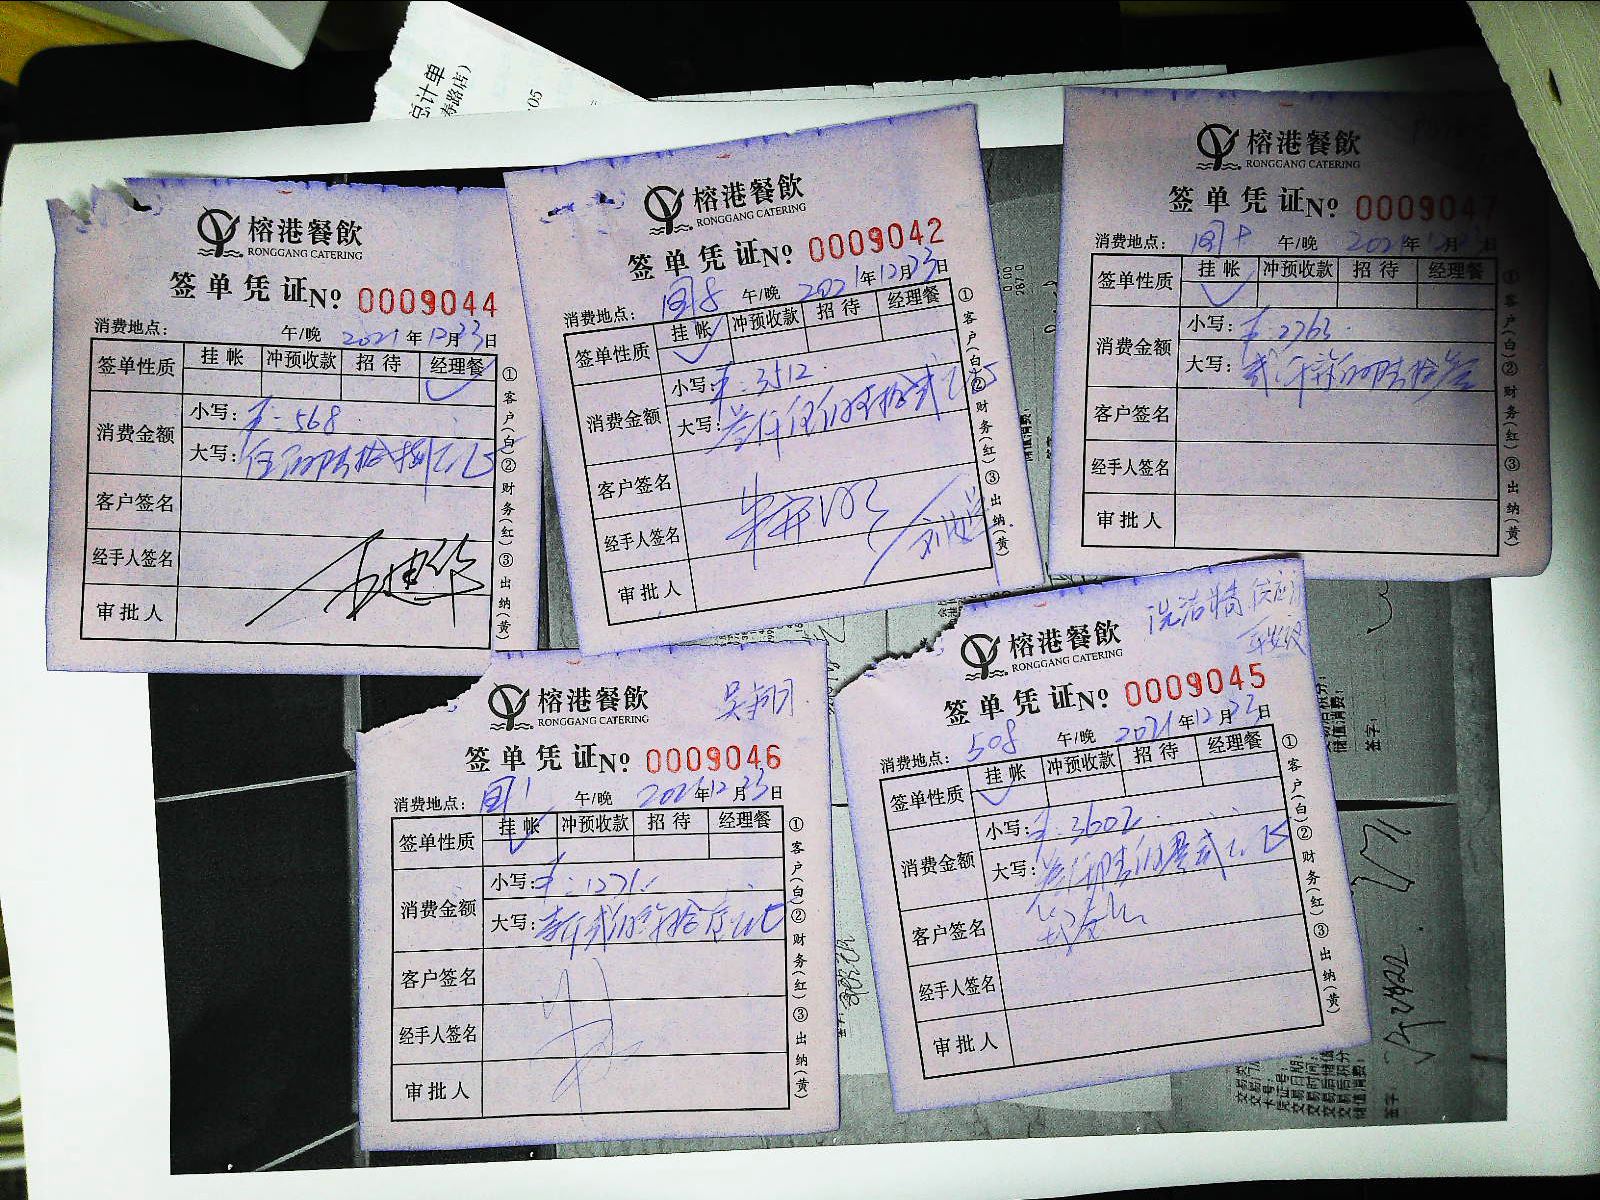 总计单
寿路店)
:05
榕港餐飲
RONGGANG CATERING
签单凭证№ 0009044
消费地点： 午/晚 2021年12月23日
签单性质 挂帐 冲预收款 招待 经理餐
消费金额 小写：¥:568
大写：伍百陆拾捌元正
客户签名
经手人签名
审批人
①客户(白)②财务(红)③出纳(黄)
榕港餐飲
RONGGANG CATERING
签单凭证№ 0009042
消费地点： 阁8 午/晚 2021年12月23日
签单性质 挂帐 冲预收款 招待 经理餐
消费金额 小写：¥:3512.
大写：叁仟伍佰壹拾贰元正
客户签名
经手人签名
审批人
①客户(白)②财务(红)③出纳(黄)
榕港餐飲
RONGGANG CATERING
签单凭证№ 0009047
消费地点： 午/晚 2021年12月23日
签单性质 挂帐 冲预收款 招待 经理餐
消费金额 小写：¥:2763.
大写：贰仟柒百陆拾叁
客户签名
经手人签名
审批人
①客户(白)②财务(红)③出纳(黄)
榕港餐飲
RONGGANG CATERING
签单凭证№ 0009046
消费地点： 午/晚 2021年12月23日
签单性质 挂帐 冲预收款 招待 经理餐
消费金额 小写：¥:1271.
大写：壹仟贰佰柒拾壹元正
客户签名
经手人签名
审批人
①客户(白)②财务(红)③出纳(黄)
洗洁精供应
榕港餐飲
RONGGANG CATERING
签单凭证№ 0009045
消费地点： 508 午/晚 2021年12月23日
签单性质 挂帐 冲预收款 招待 经理餐
消费金额 小写：¥:3602.
大写：叁仟陆佰零贰元正
客户签名
经手人签名
审批人
①客户(白)②财务(红)③出纳(黄)
储值消费：
签字：
卡号：
交易时间：
储值消费：
签字：